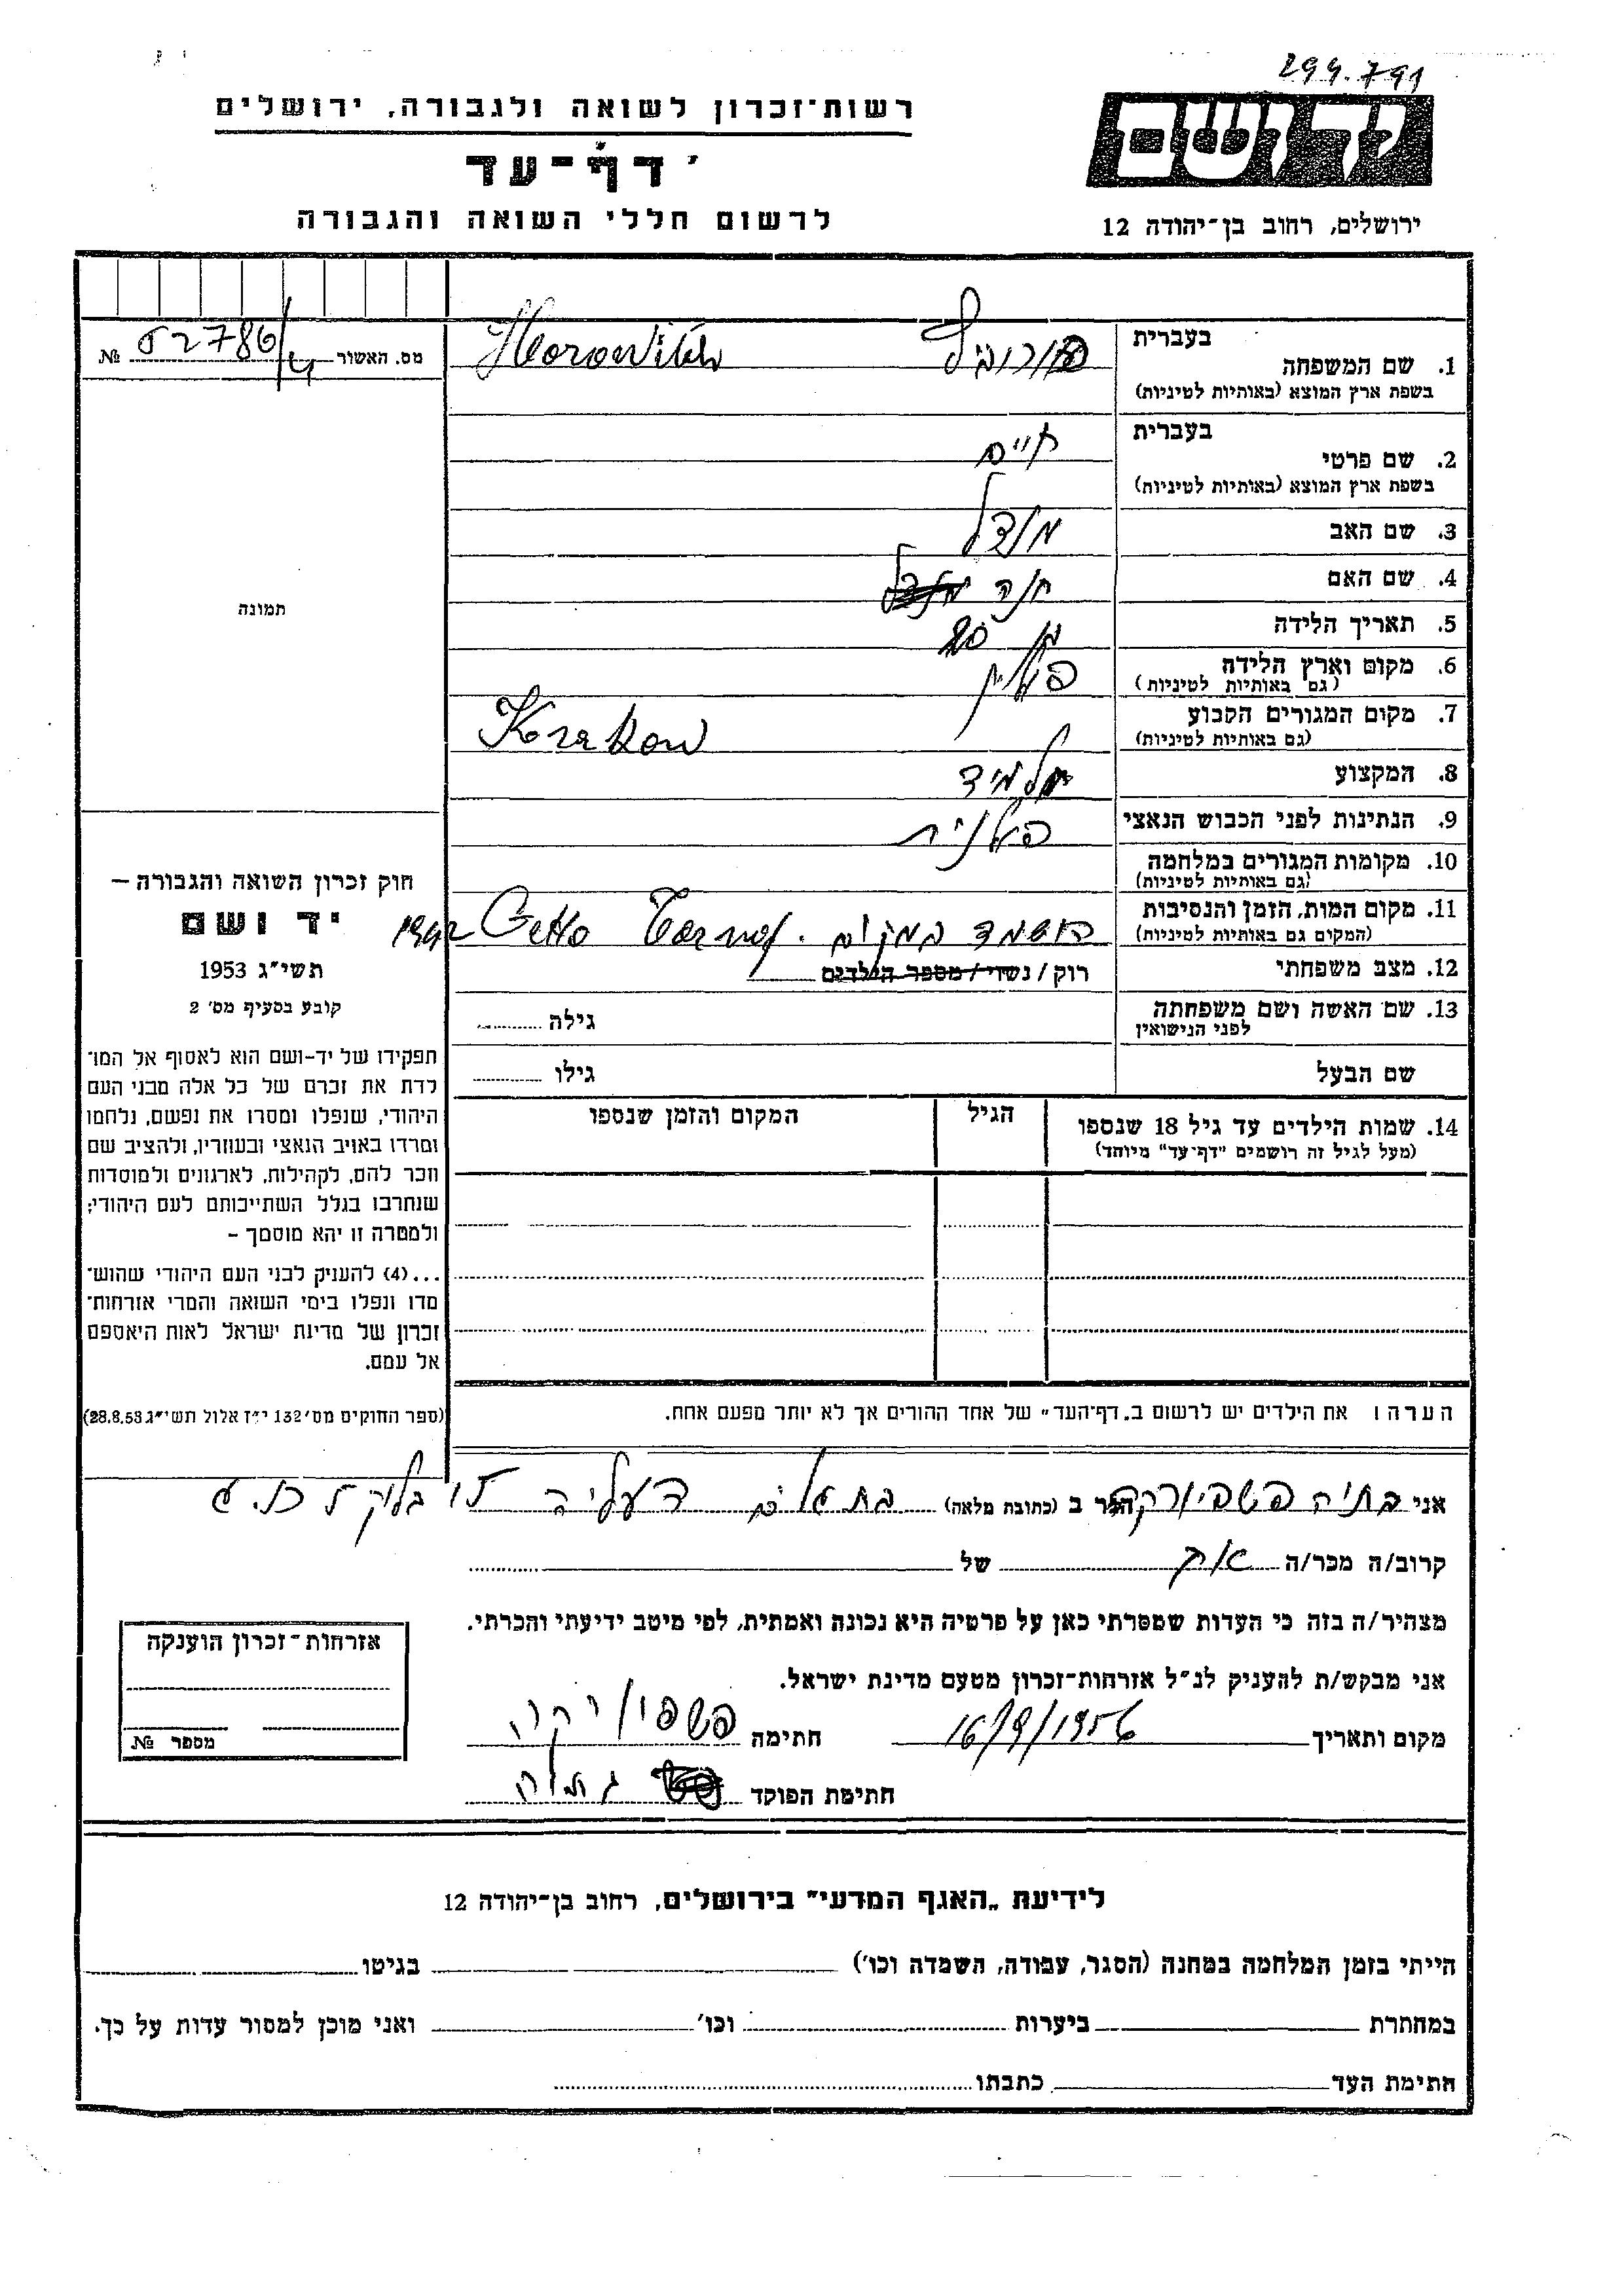 299.791
רשות־זכרון לשואה ולגבורה, ירושלים
יד ושם
דף־עד
לרשום חללי השואה והגבורה
ירושלים, רחוב בן־יהודה 12
מס. האשור 52786/4 №
בעברית
1. שם המשפחה הורוביץ Horowitz
בשפת ארץ המוצא (באותיות לטיניות)
בעברית
2. שם פרטי חיים
בשפת ארץ המוצא (באותיות לטיניות)
3. שם האב מנדל
4. שם האם חנה
5. תאריך הלידה בן 20
6. מקום וארץ הלידה פולין
(גם באותיות לטיניות)
7. מקום המגורים הקבוע Krakow
(גם באותיות לטיניות)
8. המקצוע תלמיד
9. הנתינות לפני הכבוש הנאצי פולנית
10. מקומות המגורים במלחמה
(גם באותיות לטיניות)
11. מקום המות, הזמן והנסיבות הושמד במקום. Getto Tarnof 1942
(המקום גם באותיות לטיניות)
12. מצב משפחתי רוק / נשוי / מספר הילדים
13. שם האשה ושם משפחתה גילה
לפני הנישואין
שם הבעל גילו
14. שמות הילדים עד גיל 18 שנספו הגיל המקום והזמן שנספו
(מעל לגיל זה רושמים "דף־עד" מיוחד)
תמונה
חוק זכרון השואה והגבורה —
יד ושם
תשי"ג 1953
קובע בסעיף מס' 2
תפקידו של יד-ושם הוא לאסוף אל המו־
לדת את זכרם של כל אלה מבני העם
היהודי, שנפלו ומסרו את נפשם, נלחמו
ומרדו באויב הנאצי ובעוזריו, ולהציב שם
וזכר להם, לקהילות, לארגונים ולמוסדות
שנחרבו בגלל השתייכותם לעם היהודי;
ולמטרה זו יהא מוסמך –
...(4) להעניק לבני העם היהודי שהוש־
מדו ונפלו בימי השואה והמרי אזרחות־
זכרון של מדינת ישראל לאות היאספם
אל עמם.
(ספר החוקים מס' 132 י"ז אלול תשי"ג 28.8.53)
הערה: את הילדים יש לרשום ב„דף־העד" של אחד ההורים אך לא יותר מפעם אחת.
אני בתיה הגר ב (כתובת מלאה) בת גלים העליה
קרוב/ה מכר/ה של
מצהיר/ה בזה כי העדות שמסרתי כאן על פרטיה היא נכונה ואמתית, לפי מיטב ידיעתי והכרתי.
אני מבקש/ת להעניק לנ"ל אזרחות־זכרון מטעם מדינת ישראל.
מקום ותאריך 16/9/1956 חתימה
חתימת הפוקד
אזרחות־זכרון הוענקה
מספר №
לידיעת „האגף המדעי" בירושלים, רחוב בן־יהודה 12
הייתי בזמן המלחמה במחנה (הסגר, עבודה, השמדה וכו') בגיטו
במחתרת ביערות וכו' ואני מוכן למסור עדות על כך.
חתימת העד כתבתו